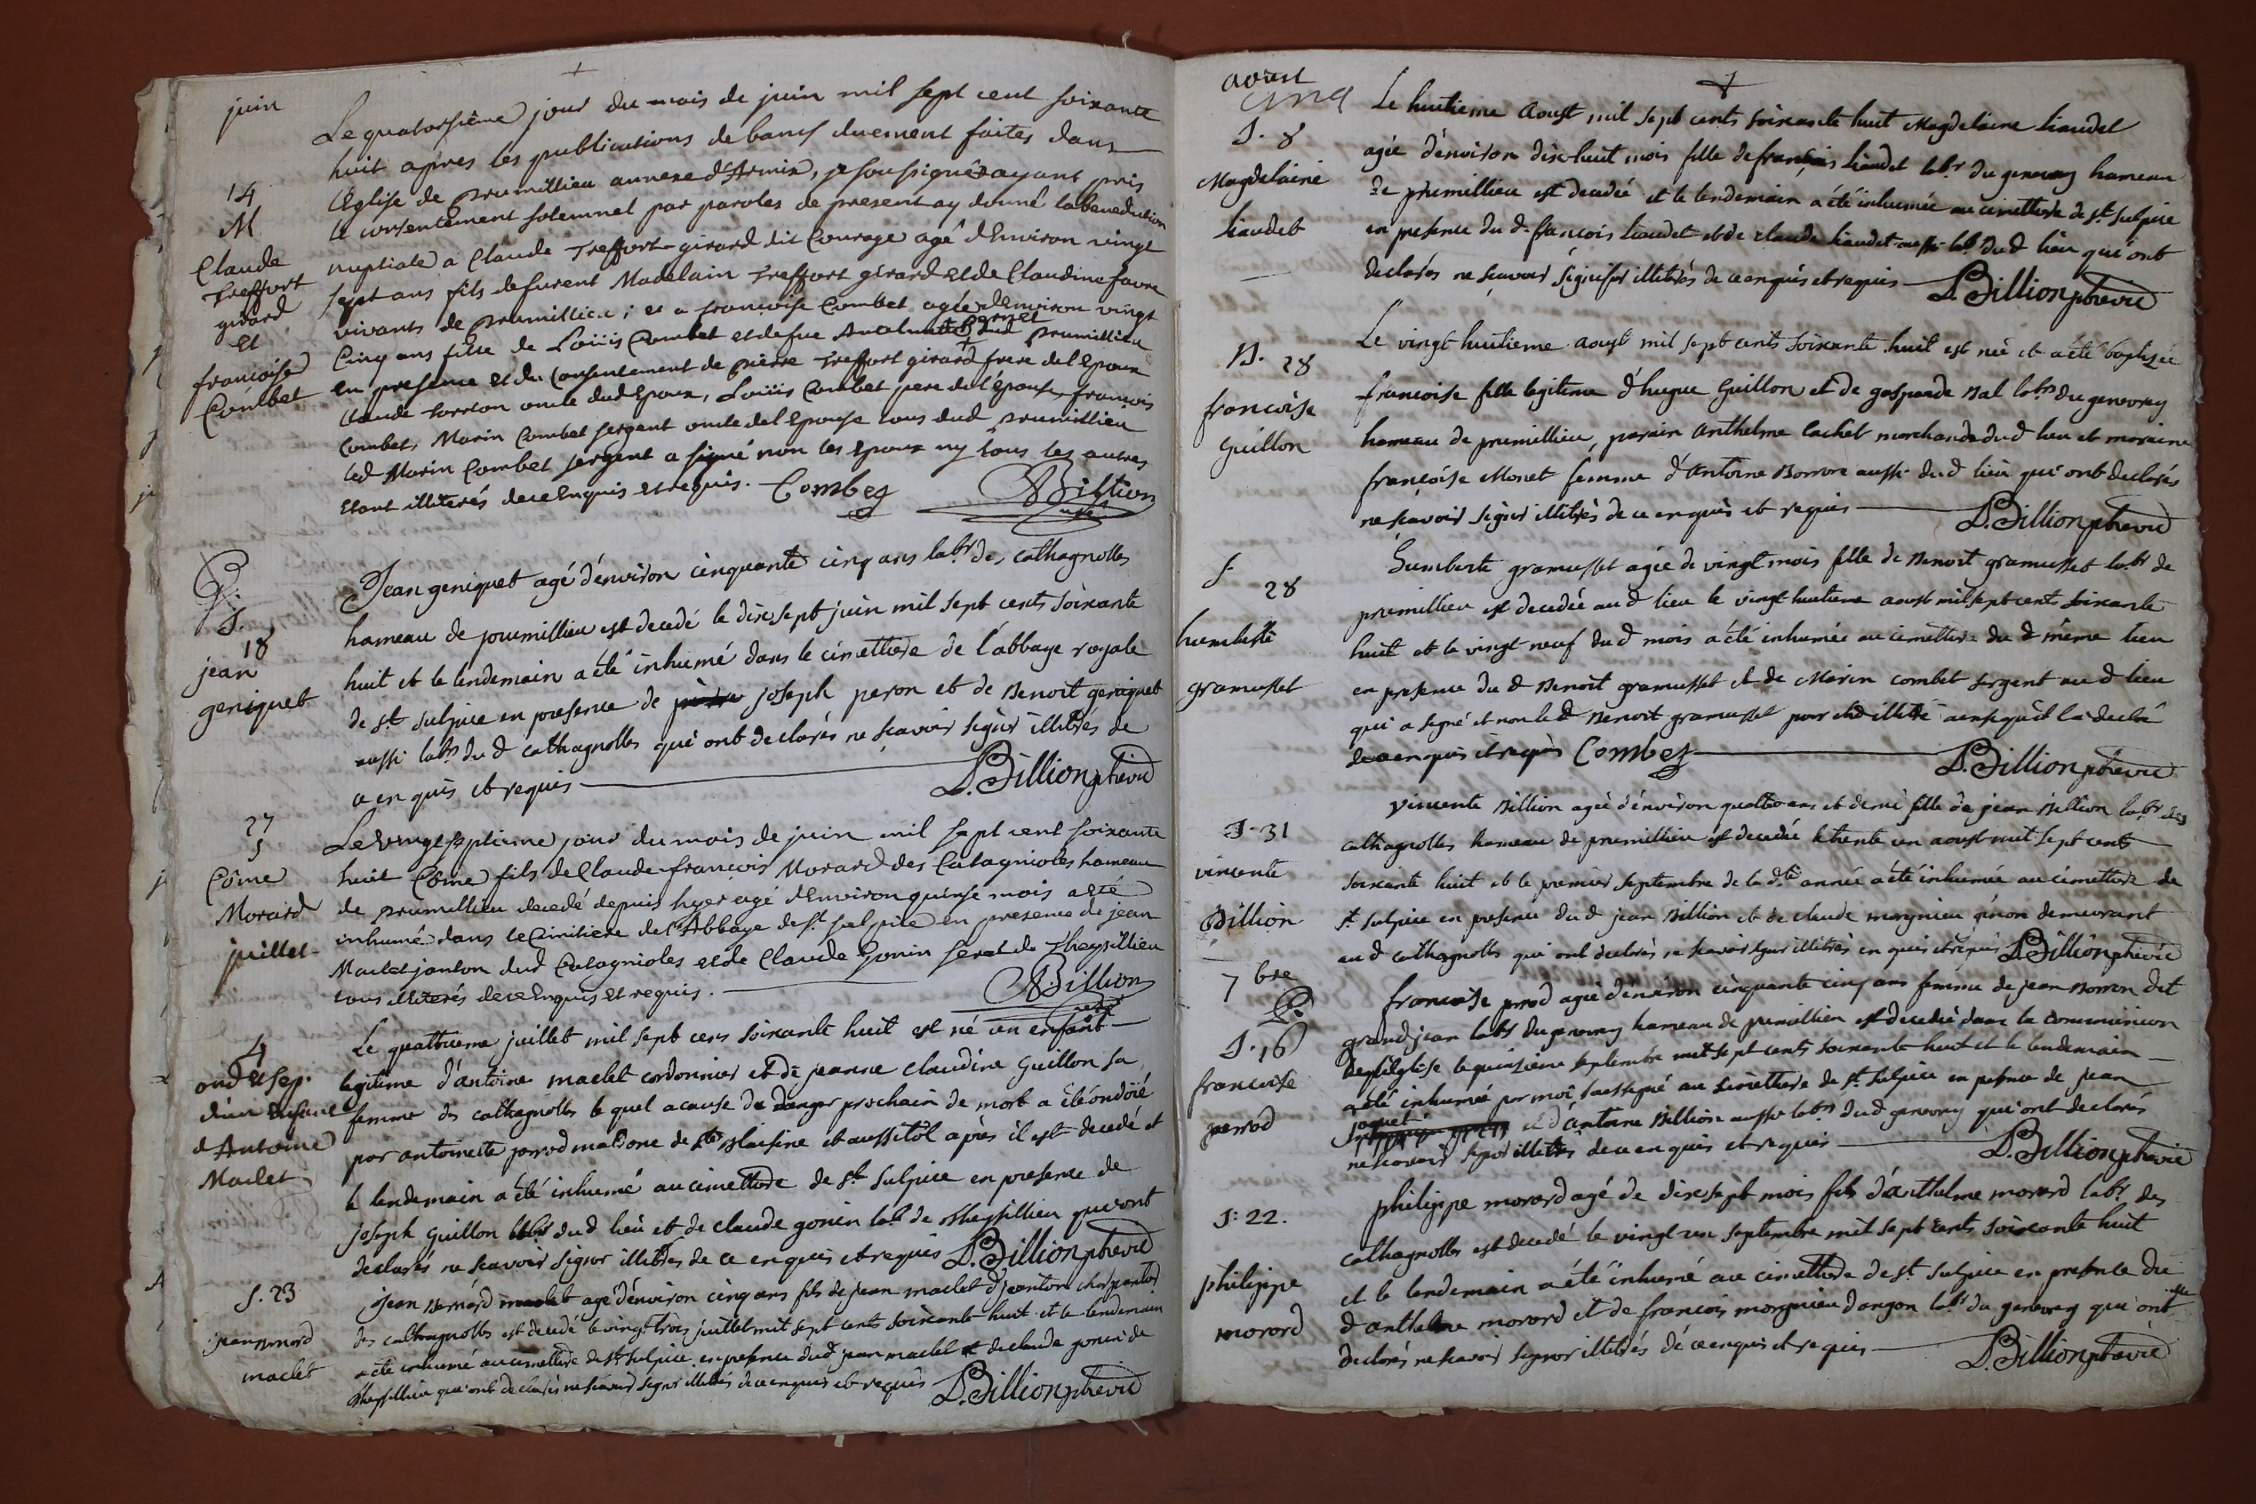 juin
Le quatorsième jour du mois de juin mil sept cent soixante
huit apres les publications de bancs duement faites dans
l'Eglise de prumillieu annexe d'Armix, je soussigné ayant pris
le consentement solemnel par paroles de present ay donné la benediction
nuptiale a Claude Treffort-girard dit Courage agé d'Environ vingt
sept ans fils de furent Madelain Treffort girard et de Claudine favre
vivants de prumillieu ; et a françoise Combet agée d'Environ vingt
Cinq ans fille de Loüis Combet et de fue Antelmette Bernet dud prumillieu
en presence et du Consentement de pierre Treffort girard frere de l'Epoux
Claude oncle dud Epoux, Loüis Combet pere de l'épouse, françois
Combet, Marin Combet sergent oncle de l'Epouse tous dud prumillieu
led Marin Combet sergent a signé non les Epoux ny tous les autres
Etant illiterés de ce Enquis et requis. Combet Billion
14
M
Claude
Treffort
girard
Et
françoise
Combet
Jean geniquet agé d'environ cinquante cinq ans labr des cathagnolles
hameau de prumillieu est decedé le dixsept juin mil sept cents soixante
huit et le lendemain a été inhumé dans le cimettiere de l'abbaye royale
de st sulpice en presence de joseph peron et de Benoit geniquet
aussi labrs dud cathagnolles qui ont declarés ne sçavoir signer illitrés de
ce enquis et requis D. Billion ptre vic
S.
18
jean
geniquet
Le vingt septieme jour du mois de juin mil sept cent soixante
huit Côme fils de Claude-françois Morard des Catagnioles hameau
de prumillieu decedé depuis hyer agé d'Environ quinse mois a eté
inhumé dans le Cimitiere de l'Abbaye de st sulpice en presence de jean
Maclet janton dud Catagnioles et de Claude Gonin de Theysillieu
tous illiterés de ce Enquis et requis. Billion
27
S
Côme
Morard
juillet
Le quattrieme juillet mil sept cens soixante huit est né un enfant
legitime d'antoine maclet cordonnier et de jeanne claudine Guillon sa
femme des cathagnolles le quel a cause du danger prochain de mort a été ondoïé
par antoinette perrod matrone de ste Blaisine et aussitôt après il est decedé et
le lendemain a été inhumé au cimettiere de st sulpice en presence de
joseph Guillon labr dud lieu et de claude gonin labr de theysillieu qui ont
declarés ne scavoir signer illitrés de ce enquis et requis D. Billion ptre vic
4
ond et sep.
d'un Enfant
d'Antoine
Maclet
jean Bernard maclet agé d'environ cinq ans fils de jean maclet djeanton charpentier
des cathagnolles est decedé le vingt trois juillet mil sept cents soixante huit et le lendemain
a eté inhumé au cimettiere de st sulpice en presence dud jean maclet et de claude gonin de
theysillieu qui ont declarés ne scavoir signer illitrés de ce enquis et requis D. Billion ptre vic
S. 23
jean Bernard
maclet
aoust
cinq
Le huitieme Aoust mil sept cents soixante huit Magdelaine Liaudet
agée d'environ dix-huit mois fille de françois Liaudet labr du genevray hameau
de prumillieu est decedée et le lendemain a été inhumée au cimettiere de st sulpice
en presence du d françois Liaudet et de claude Liaudet aussi labr dud lieu qui ont
declarés ne scavoir signer illitrés de ce enquis et requis D. Billion ptre vic
S. 8
Magdelaine
Liaudet
Le vingt huitieme aoust mil sept cents soixante huit est née et a été baptisée
francoise fille legitime d'hugue Guillon et de gasparde Bal labrs du genevray
hameau de prumillieu, parain Anthelme Cachet marchand dud lieu et maraine
françoise Monet femme d'antoine Borron aussi dud lieu qui ont declarés
ne scavoir signer illitrés de ce enquis et requis D. Billion ptre vic
B. 28
francoise
Guillon
humberte gramusset agée de vingt mois fille de Benoit gramusset labr de
prumillieu est decedée aud lieu le vingt huitieme aoust mil sept cents soixante
huit et le vingt neuf dud mois a été inhumée au cimettiere du d même lieu
en presence du d Benoit gramusset et de Marin combet sergent aud lieu
qui a signé et non led Benoit gramusset pour etre illitré ainsi qu'il la declaré
de ce enquis et requis Combet D. Billion ptre vic
S 28
humberte
gramusset
vincente Billion agée d'environ quattre ans et demi fille de jean Billion labr des
cathagnolles hameau de prumillieu est decedée le trente un aoust mil sept cents
soixante huit et le premier septembre de la dte année a été inhumée au cimettiere de
st sulpice en presence dud jean Billion et de claude morgnieu demeurant
aud cathagnolles qui ont declarés ne scavoir signer illitrés enquis et requis D. Billion ptre vic
S. 31
vincente
Billion
7bre
francoise perrod agée d'environ cinquante cinq ans femme de jean Borron dit
grand jean labr du genevray hameau de prumillieu est decedée dans la communion
de l'Eglise le quinzieme septembre mil sept cents soixante huit et le lendemain
a été inhumée par moi soussigné au cimettiere de st sulpice en presence de jean
joquet et d'antoine Billion aussi labrs dud genevray qui ont declarés
ne scavoir signer illitrés de ce enquis et requis D. Billion ptre vic
S. 16
francoise
perrod
philippe morard agé de dix sept mois fils d'anthelme morard labr des
cathagnolles est decedé le vingt un septembre mil sept cents soixante huit
et le lendemain a été inhumé au cimettiere de st sulpice en presence du
d anthelme morard et de francois morgnieu dangon labr du genevray qui ont
declarés ne scavoir signer illitrés de ce enquis et requis D. Billion ptre vic
S. 22.
philippe
morard